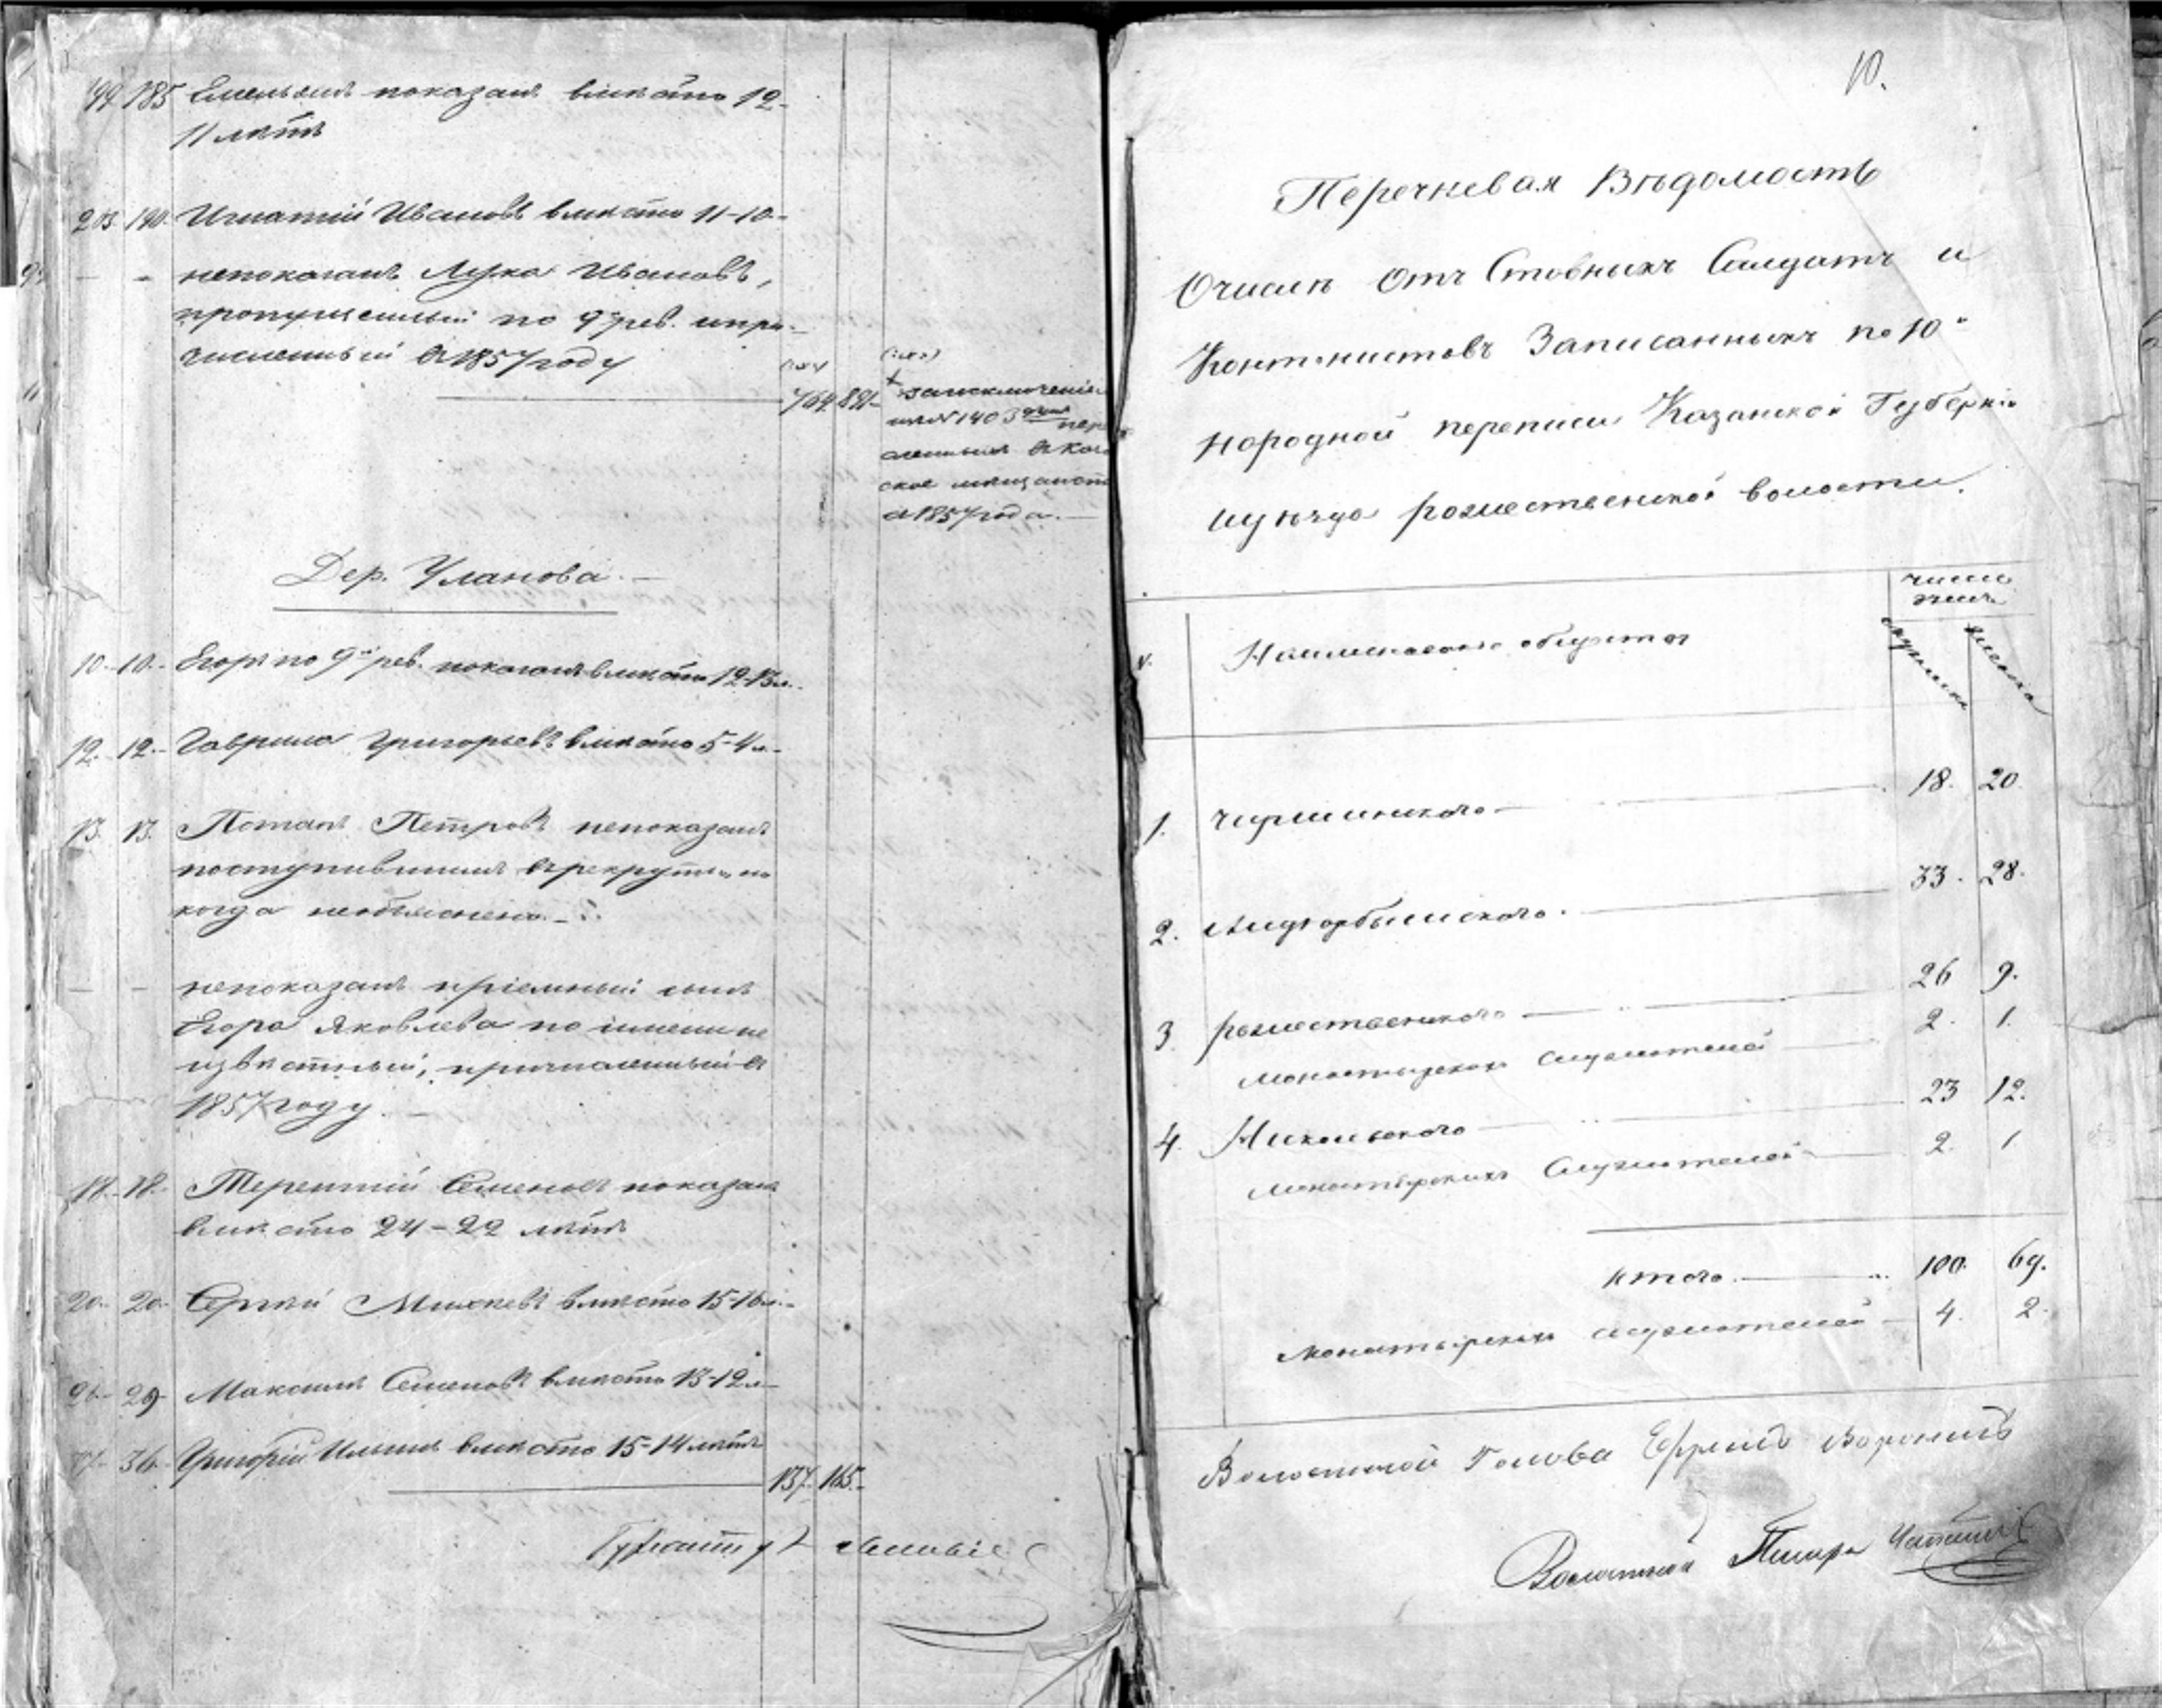 199. 185 Емельянъ показанъ вмѣсто 12-
11 лѣтъ
203. 190. Игнатій Ивановъ вмѣсто 11-10.-
— - непоказанъ Лука Ивановъ,
пропущенный по 9й рев. и при-
численный въ 1857 году
764. 891.-
за исключеніемъ
1403
въ
1857 года.—
Дер. Уланова.—
10.- 10.- Егоръ по 9й рев. показанъ вмѣсто 12-13 л.-
12.- 12.- Гаврила Григорьевъ вмѣсто 5-4 л.-
13. 13. Потапъ Петровъ непоказанъ
поступившимъ въ рекруты, но
когда необъяснено.-
— - непоказанъ пріемный сынъ
Егора Яковлева по имени не
извѣстный, причисленный въ
1857 году.—
18.- 18.- Терентій Семеновъ показанъ
вмѣсто 24-22 лѣтъ
20.- 20.- Сергѣй вмѣсто 15-16 л.-
26.- 29.- Максимъ Семеновъ вмѣсто 13-12 л-
36. Григорій Ильинъ вмѣсто 15-14 лѣтъ
137. 165.-
10.
Перечневая Вѣдомость
Очислѣ Отъ Ставныхъ Салдатъ и
Контонистовъ Записанныхъ по 10й
народной переписи Казанской Губерніи
иуѣзда рожественской волости.
число
душъ
№. Наименованіе обществъ мужеска женска
1. 18. 20.
2. 33. 28.
3. рожественского — 26 9.
Монастырскихъ служителей — 2. 1.
4. Никольского — 23 12.
Монастырскихъ Служителей — 2. 1
Итого. — 100. 69.
Монастырскихъ служителей — 4. 2.
Волостной Голова Ефимъ Воронинъ
Волостной Писарь